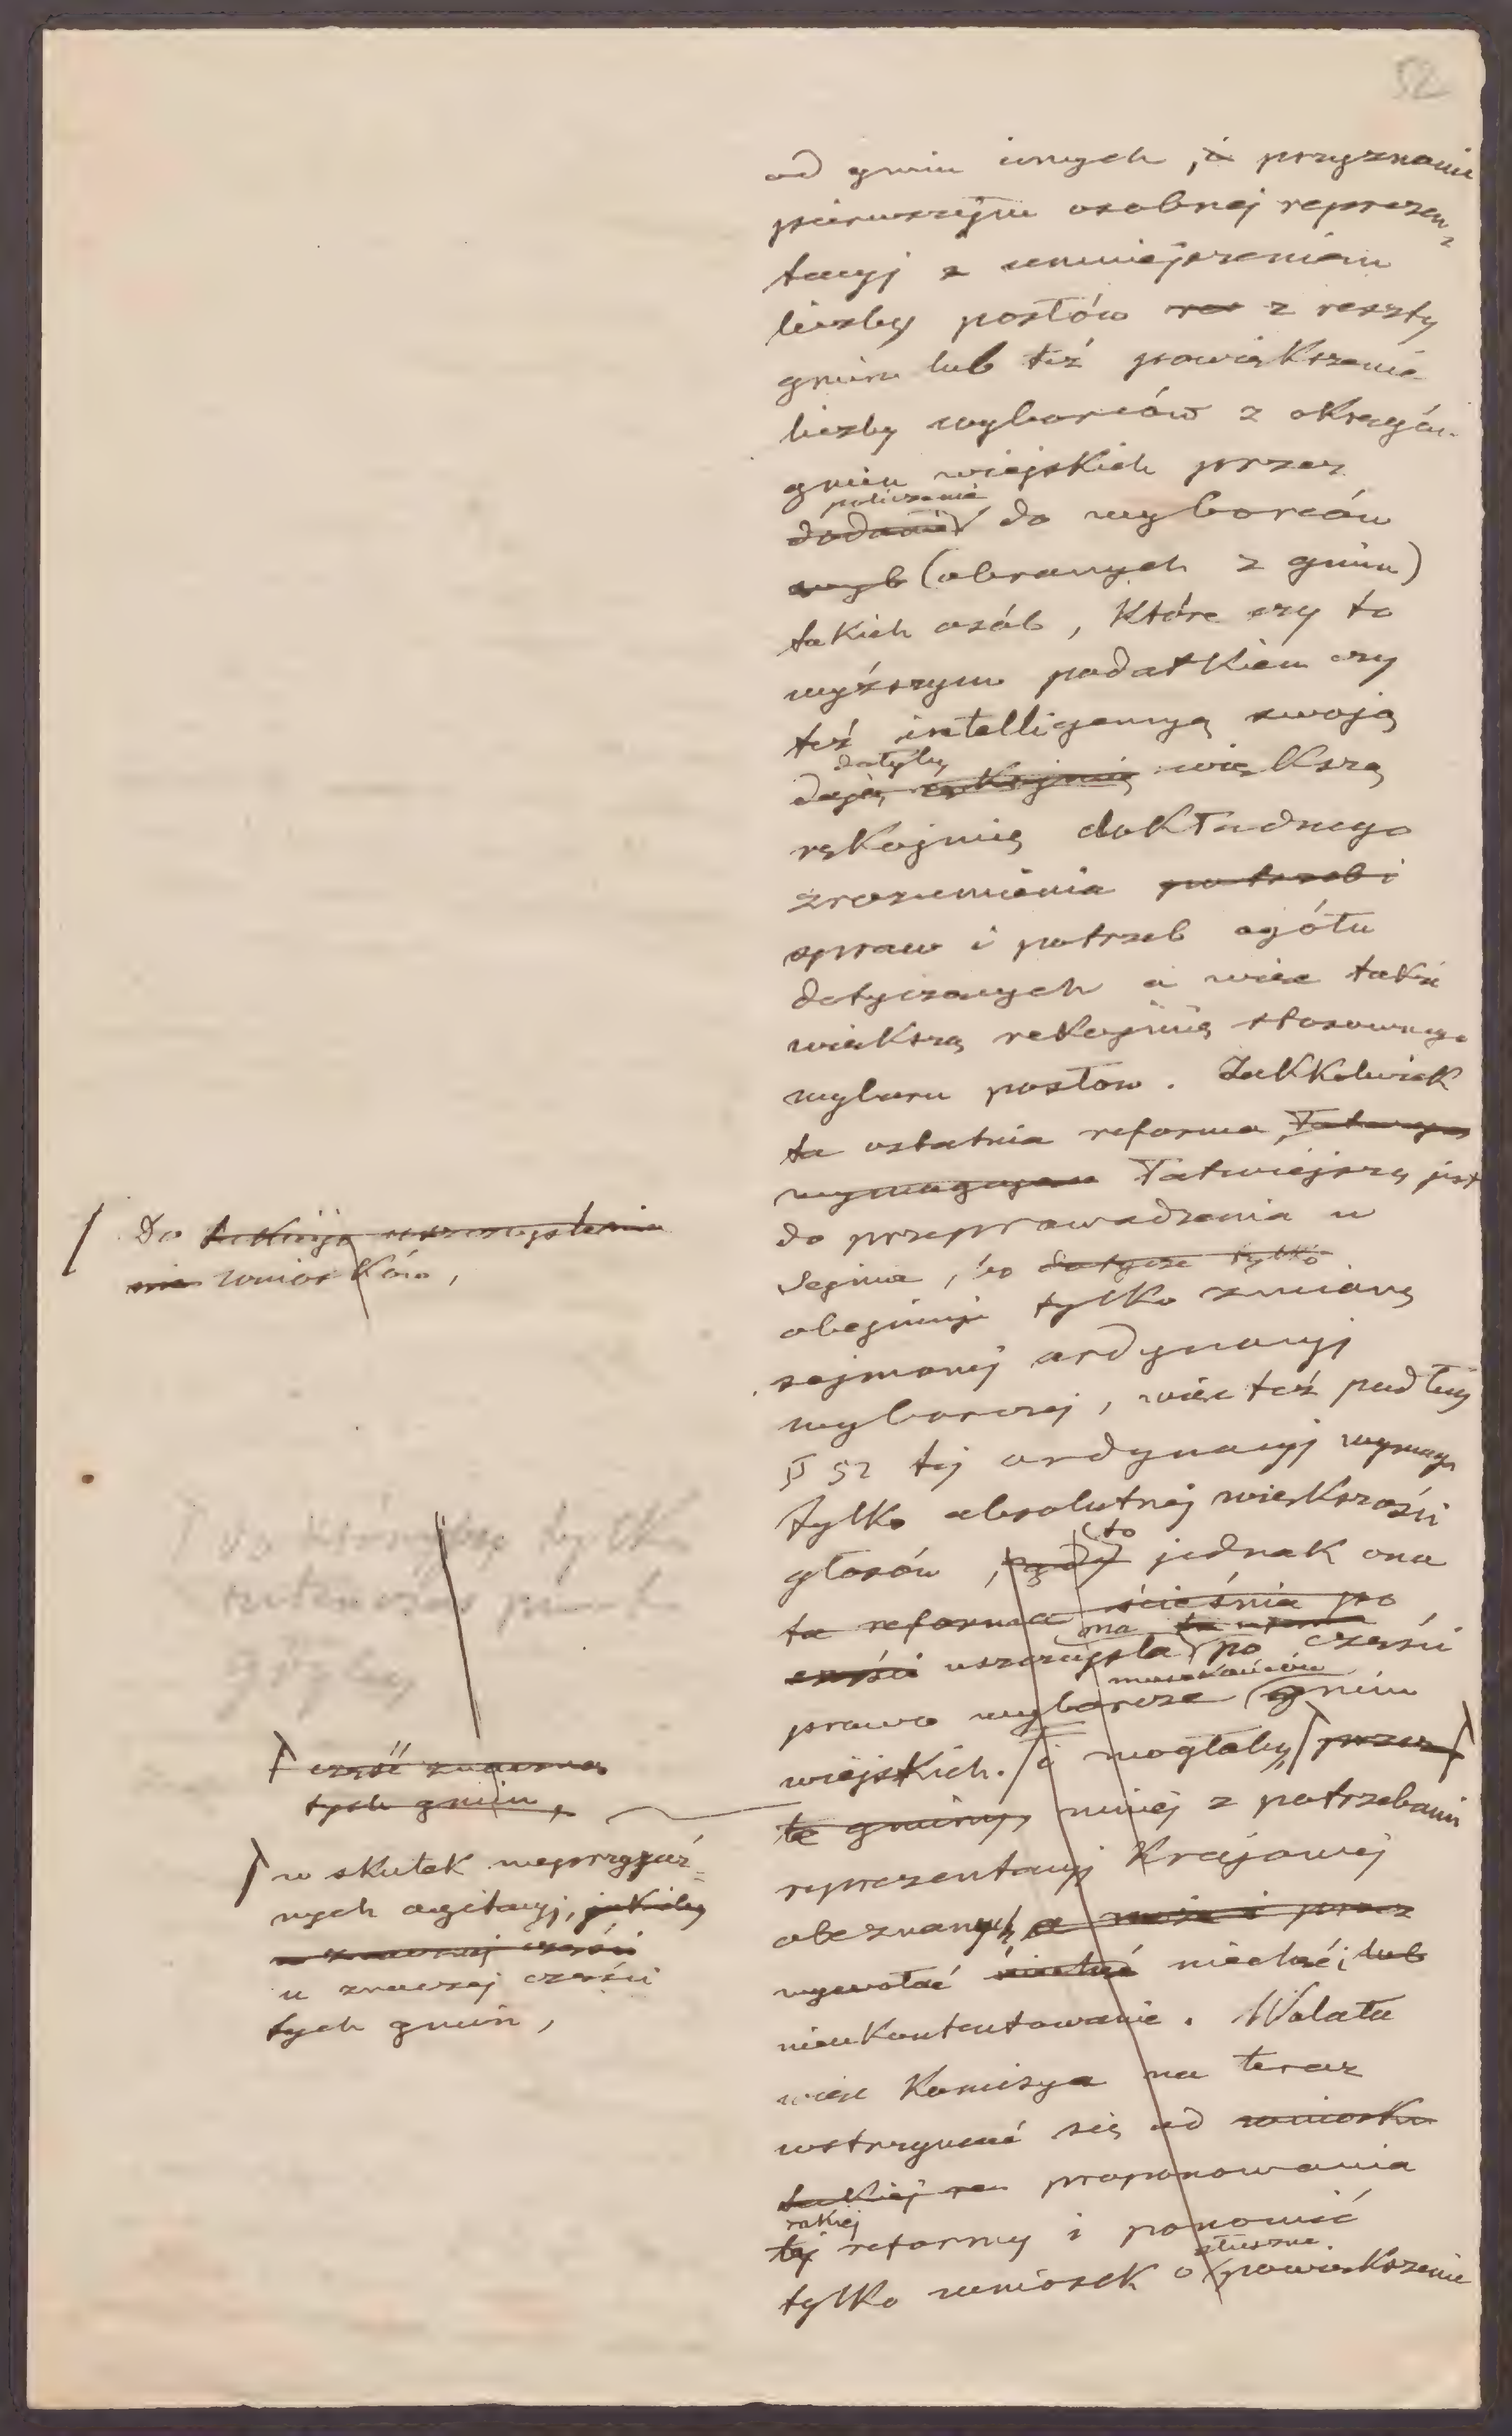 52
od gmin innych, i przyznanie
pierwszym osobnej reprezen-
tacyj z umniejszeniem
liczby posłów res z reszty
gmin lub też powiększenie
liczby wyborców z okręgów
gmin wiejskich przez
policzenie
dodanie do wyborców
wyb (obranych z gmin)
takich osób, które czy to
wyższym podatkiem czy
też intelligencyą swoją
dałyby
dają rękojmię większą
rękojmię dokładnego
zrozumienia potrzeb i
spraw i potrzeb ogółu
dotyczących a więc także
większą rękojmię stosownego
wyboru posłow. Jakkolwiek
ta ostatnia reforma
łatwiejszą jest
do przeprowadzenia w
Sejmie, bo dotyczy tylko
obejmuje tylko zmianę
sejmowej ordynacyj
wyborczej, więc też podług
§ 52 tej ordynacyj wymaga
tylko absolutnej większości
głosów, gdy to jednak ona
ta reforma ścieśnia po
części uszczupla po części
mieszkańców
prawo wyborcze gmin
wiejskich. i mogłaby przez
te gminy, mniej z potrzebami
reprezentacyj krajowej
obeznanych, a może i przez
wywołać niechęć i lub
nieukontentowanie. Wolała
więc Komisya na teraz
wstrzymać się od wniosku
takiej re proponowania
takiej
tej reformy i ponowić
słuszne
tylko wniosek o powiększenie
Do
nie wniosków,
do którejby tylko
część znaczna
tych gmin,
w skutek nieprzyjaź-
nych agitacyj, jakieby
w znacznej części
u znaczej części
tych gmin,